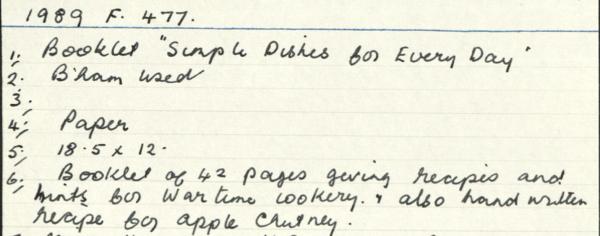 1989 F. 477.
1. Booklet "Simple Dishes for Every Day"
2. B'ham used
3.
4. Paper
5. 18.5 x 12.
6. Booklet of 42 pages giving recipes and
hints for Wartime cookery. & also hand written
recipe for apple chutney.